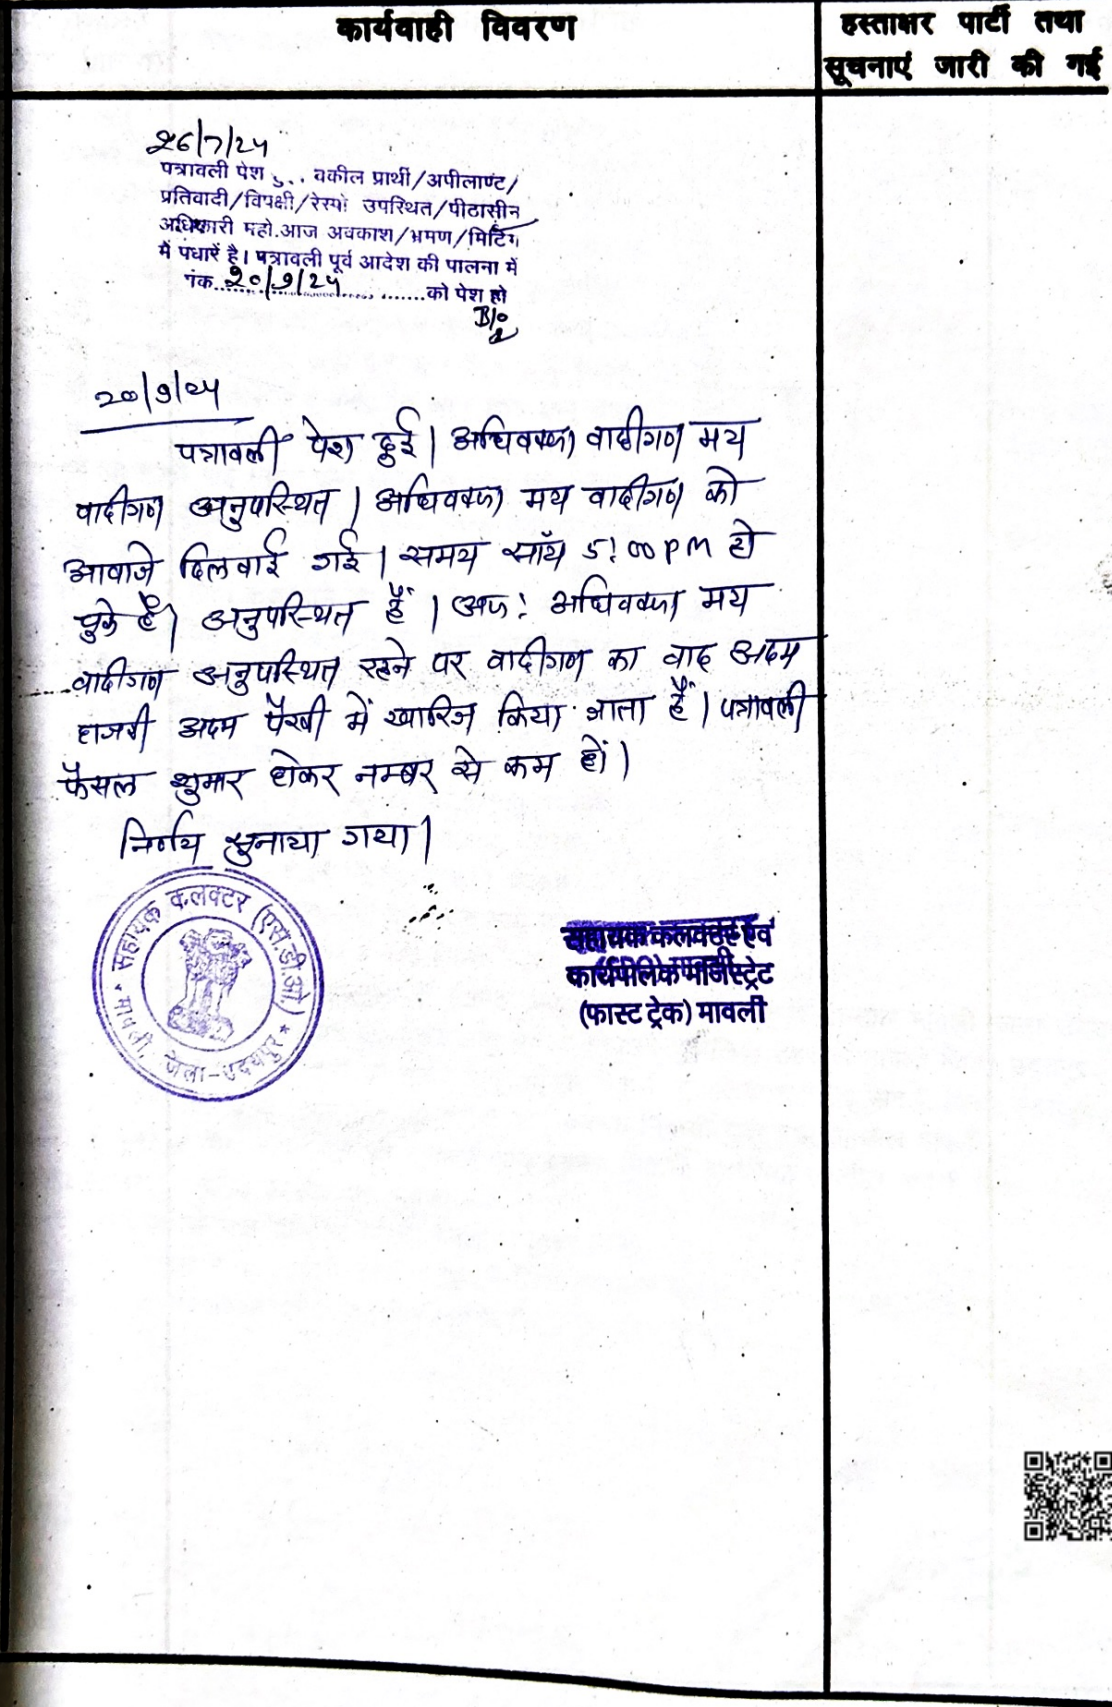 कार्यवाही विवरण
हस्ताक्षर पार्टी तथा
सूचनाएं जारी की गई
26/7/24
पत्रावली पेश वकील प्रार्थी/अपीलाण्ट/
प्रतिवादी/विपक्षी/रेस्पो उपस्थित/पीठासीन
अधिकारी महो.आज अवकाश/भ्रमण/मिटिंग
में पधारें है। पत्रावली पूर्व आदेश की पालना में
नंक.....20/9/24.....को पेश हो
20/9/24
पत्रावली पेश हुई। अधिवक्ता वादीगण मय
वादीगण अनुपस्थित। अधिवक्ता मय वादीगण को
आवाजे दिलवाई गई। समय सॉय 5:00 PM हो
चुके है। अनुपस्थित हैं। अतः अधिवक्ता मय
वादीगण अनुपस्थित रहने पर वादीगण का वाद अदम
हाजरी अदम पैरवी में खारिज किया जाता हैं। पत्रावली
फैसल शुमार होकर नम्बर से कम हों।
निर्णय सुनाया गया।
सहायक कलक्टर (एस.डी.ओ)
मावली, जिला-उदयपुर
सहायक कलक्टर एवं
कार्यपालिक मजिस्ट्रेट
(फास्ट ट्रेक) मावली